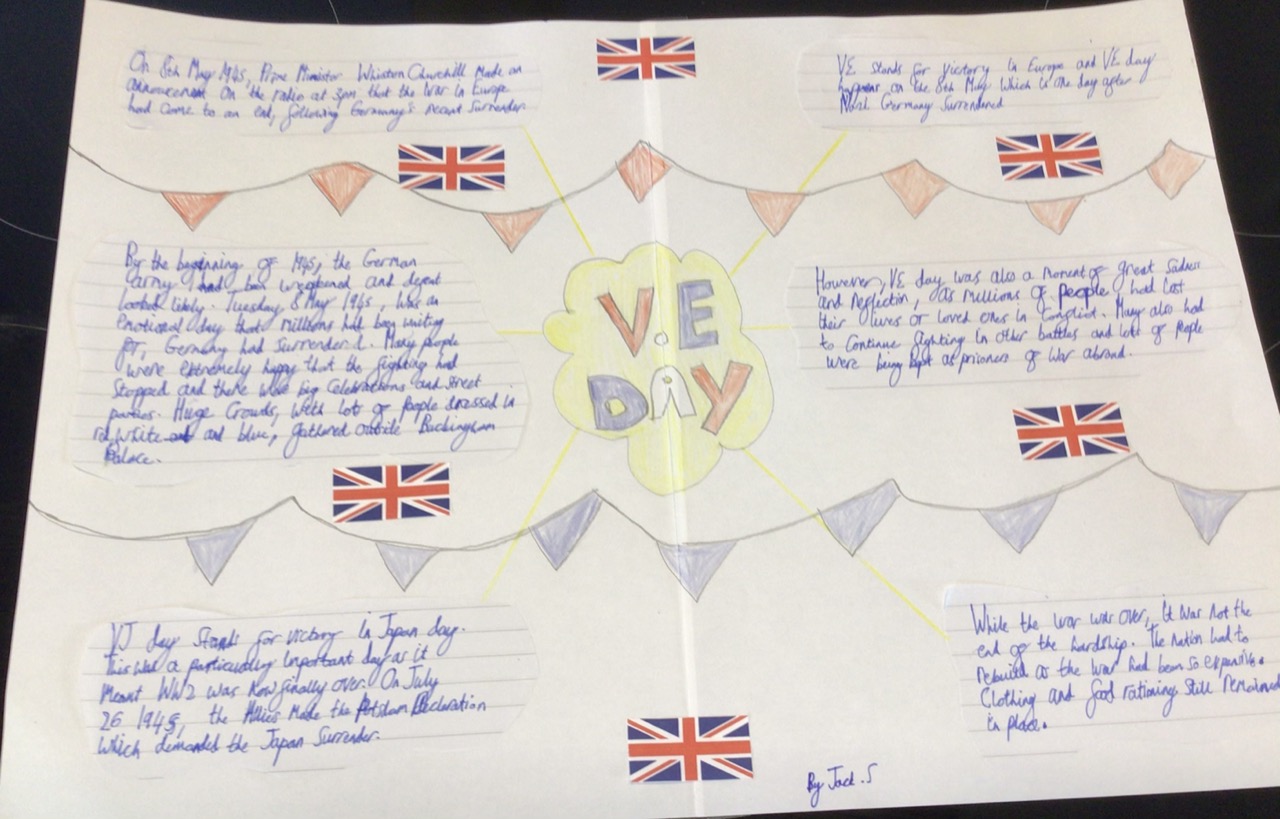 On 8th May 1945, Prime Minister Whinston Churchill made an
announcement on the radio at 3pm that the war in Europe
had come to an end, following Germany's recent surrender.
VE stands for victory in Europe and VE day
happens on the 8th May which is the day after
Nazi Germany surrendered
By the beginning of 1945, the German
army had been weakened and defeat
looked likely. Tuesday, 8 May 1945, was an
emotional day that millions had been waiting
for, Germany had surrendered. Many people
were extremely happy that the fighting had
stopped and there were big celebrations and street
parties. Huge crowds, with lots of people dressed in
red, white and blue, gathered outside Buckingham
Palace.
However, VE day was also a moment of great sadness
and reflection, as millions of people had lost
their lives or loved ones in conflict. Many also had
to continue fighting in other battles and lots of people
were being kept as prisoners of war abroad.
V.E
DAY
VJ day stands for victory in Japan day.
This was a particularly important day as it
meant WW2 was now finally over. On July
26 1945, the Allies made the Potsdam Declaration
which demanded the Japan surrender.
While the war was over, it was not the
end of the hardship. The nation had to
rebuild as the war had been so expensive.
Clothing and food rationing still remained
in place.
By Jack.S